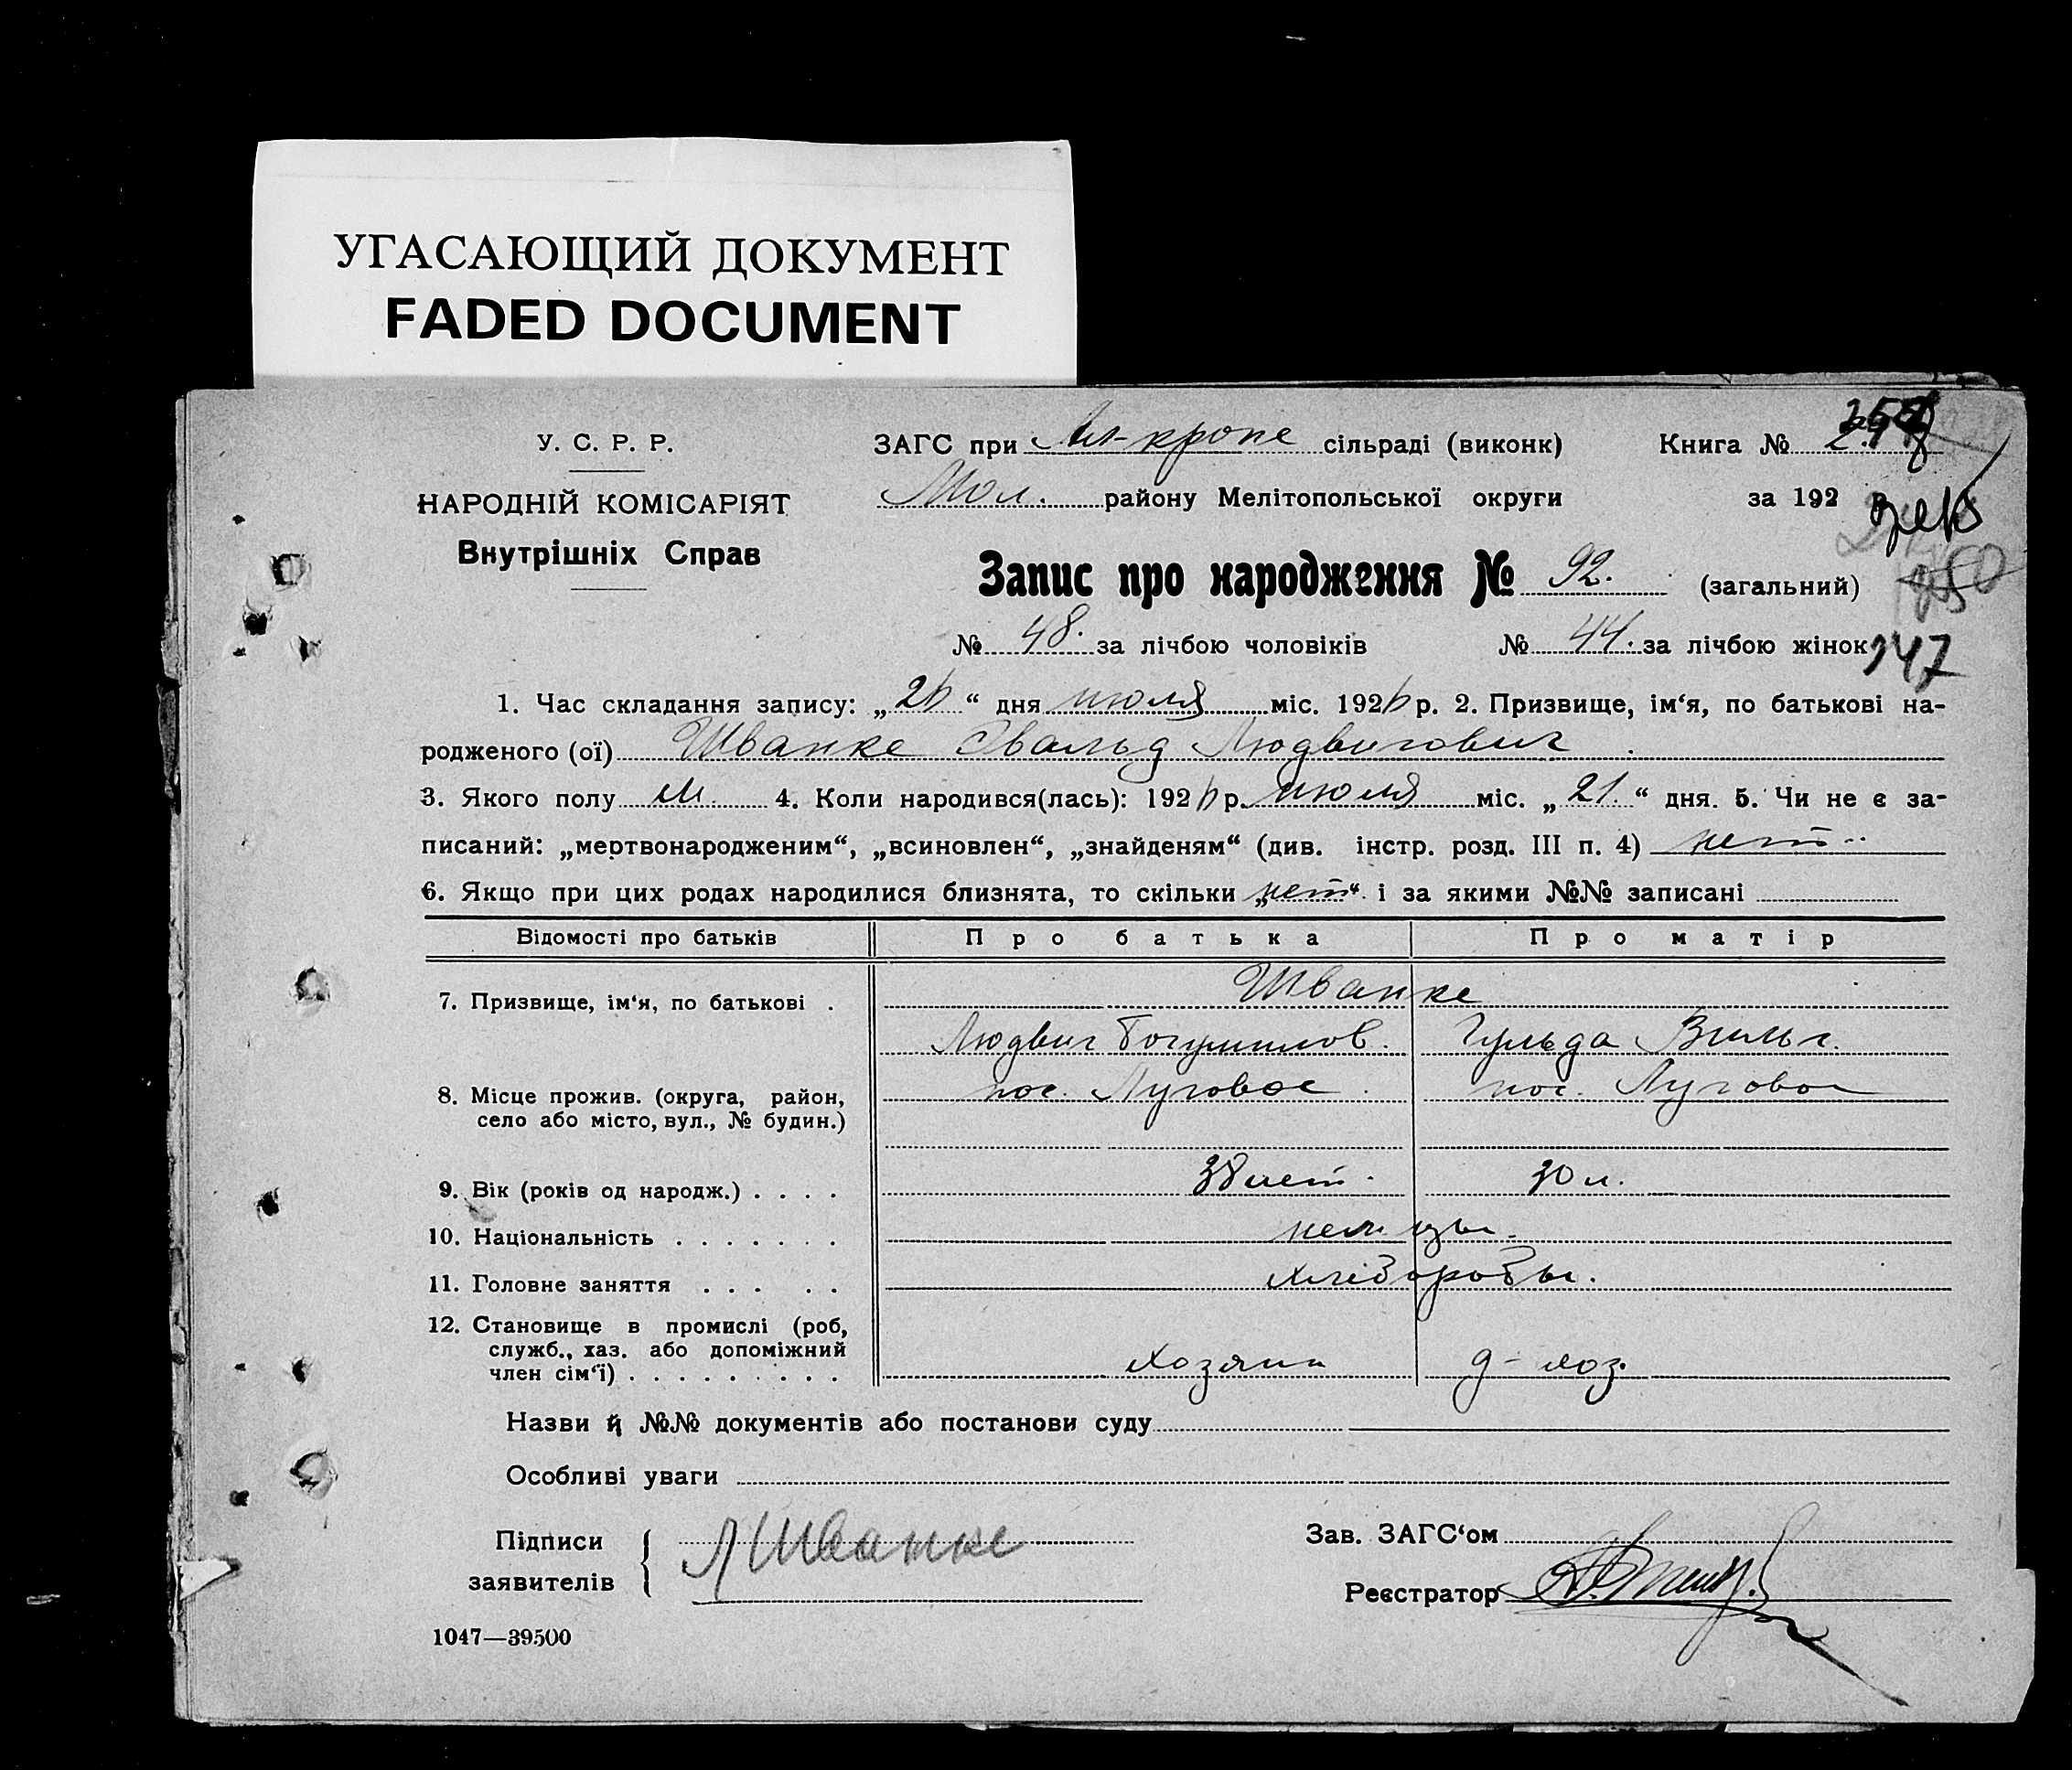 УГАСАЮЩИЙ ДОКУМЕНТ
FADED DOCUMENT
У. С. Р. Р.
НАРОДНІЙ КОМІСАРІЯТ
Внутрішніх Справ
ЗАГС при Ал-кроне сільраді (виконк)
Книга №
Мол. району Мелітопольської округи
за 192
Запис про народження № 92. (загальний)
№ 48. за лічбою чоловіків № 44. за лічбою жінок
147
1. Час складання запису: „26“ дня июля міс. 1926 р. 2. Призвище, ім‘я, по батькові на-
родженого (ої) Шванке Эвальд Людвигович
3. Якого полу м. 4. Коли народився(лась): 1926 р. июля міс. „21.“ дня. 5. Чи не є за-
писаний: „мертвонародженим“, „всиновлен“, „знайденям“ (див. інстр. розд. III п. 4) нет
6. Якщо при цих родах народилися близнята, то скільки „нет“ і за якими №№ записані
Відомості про батьків Про батька Про матір
7. Призвище, ім‘я, по батькові . Шванке
Людвиг Богумилов. Гульда Вильг.
8. Місце прожив. (округа, район, пос. Луговое пос. Луговое
село або місто, вул., № будин.)
9. Вік (років од народж.) . . . . 38 лет. 30 л.
10. Національність . . . . . . . немцы.
11. Головне заняття . . . . . хлібороби.
12. Становище в промислі (роб,
служб., хаз. або допоміжний
член сім‘ї) . . . . . . . . . хозяин д-хоз.
Назви й №№ документів або постанови суду
Особливі уваги
Підписи
заявителів
Л Шванке
Зав. ЗАГС‘ом
Реєстратор
1047—39500